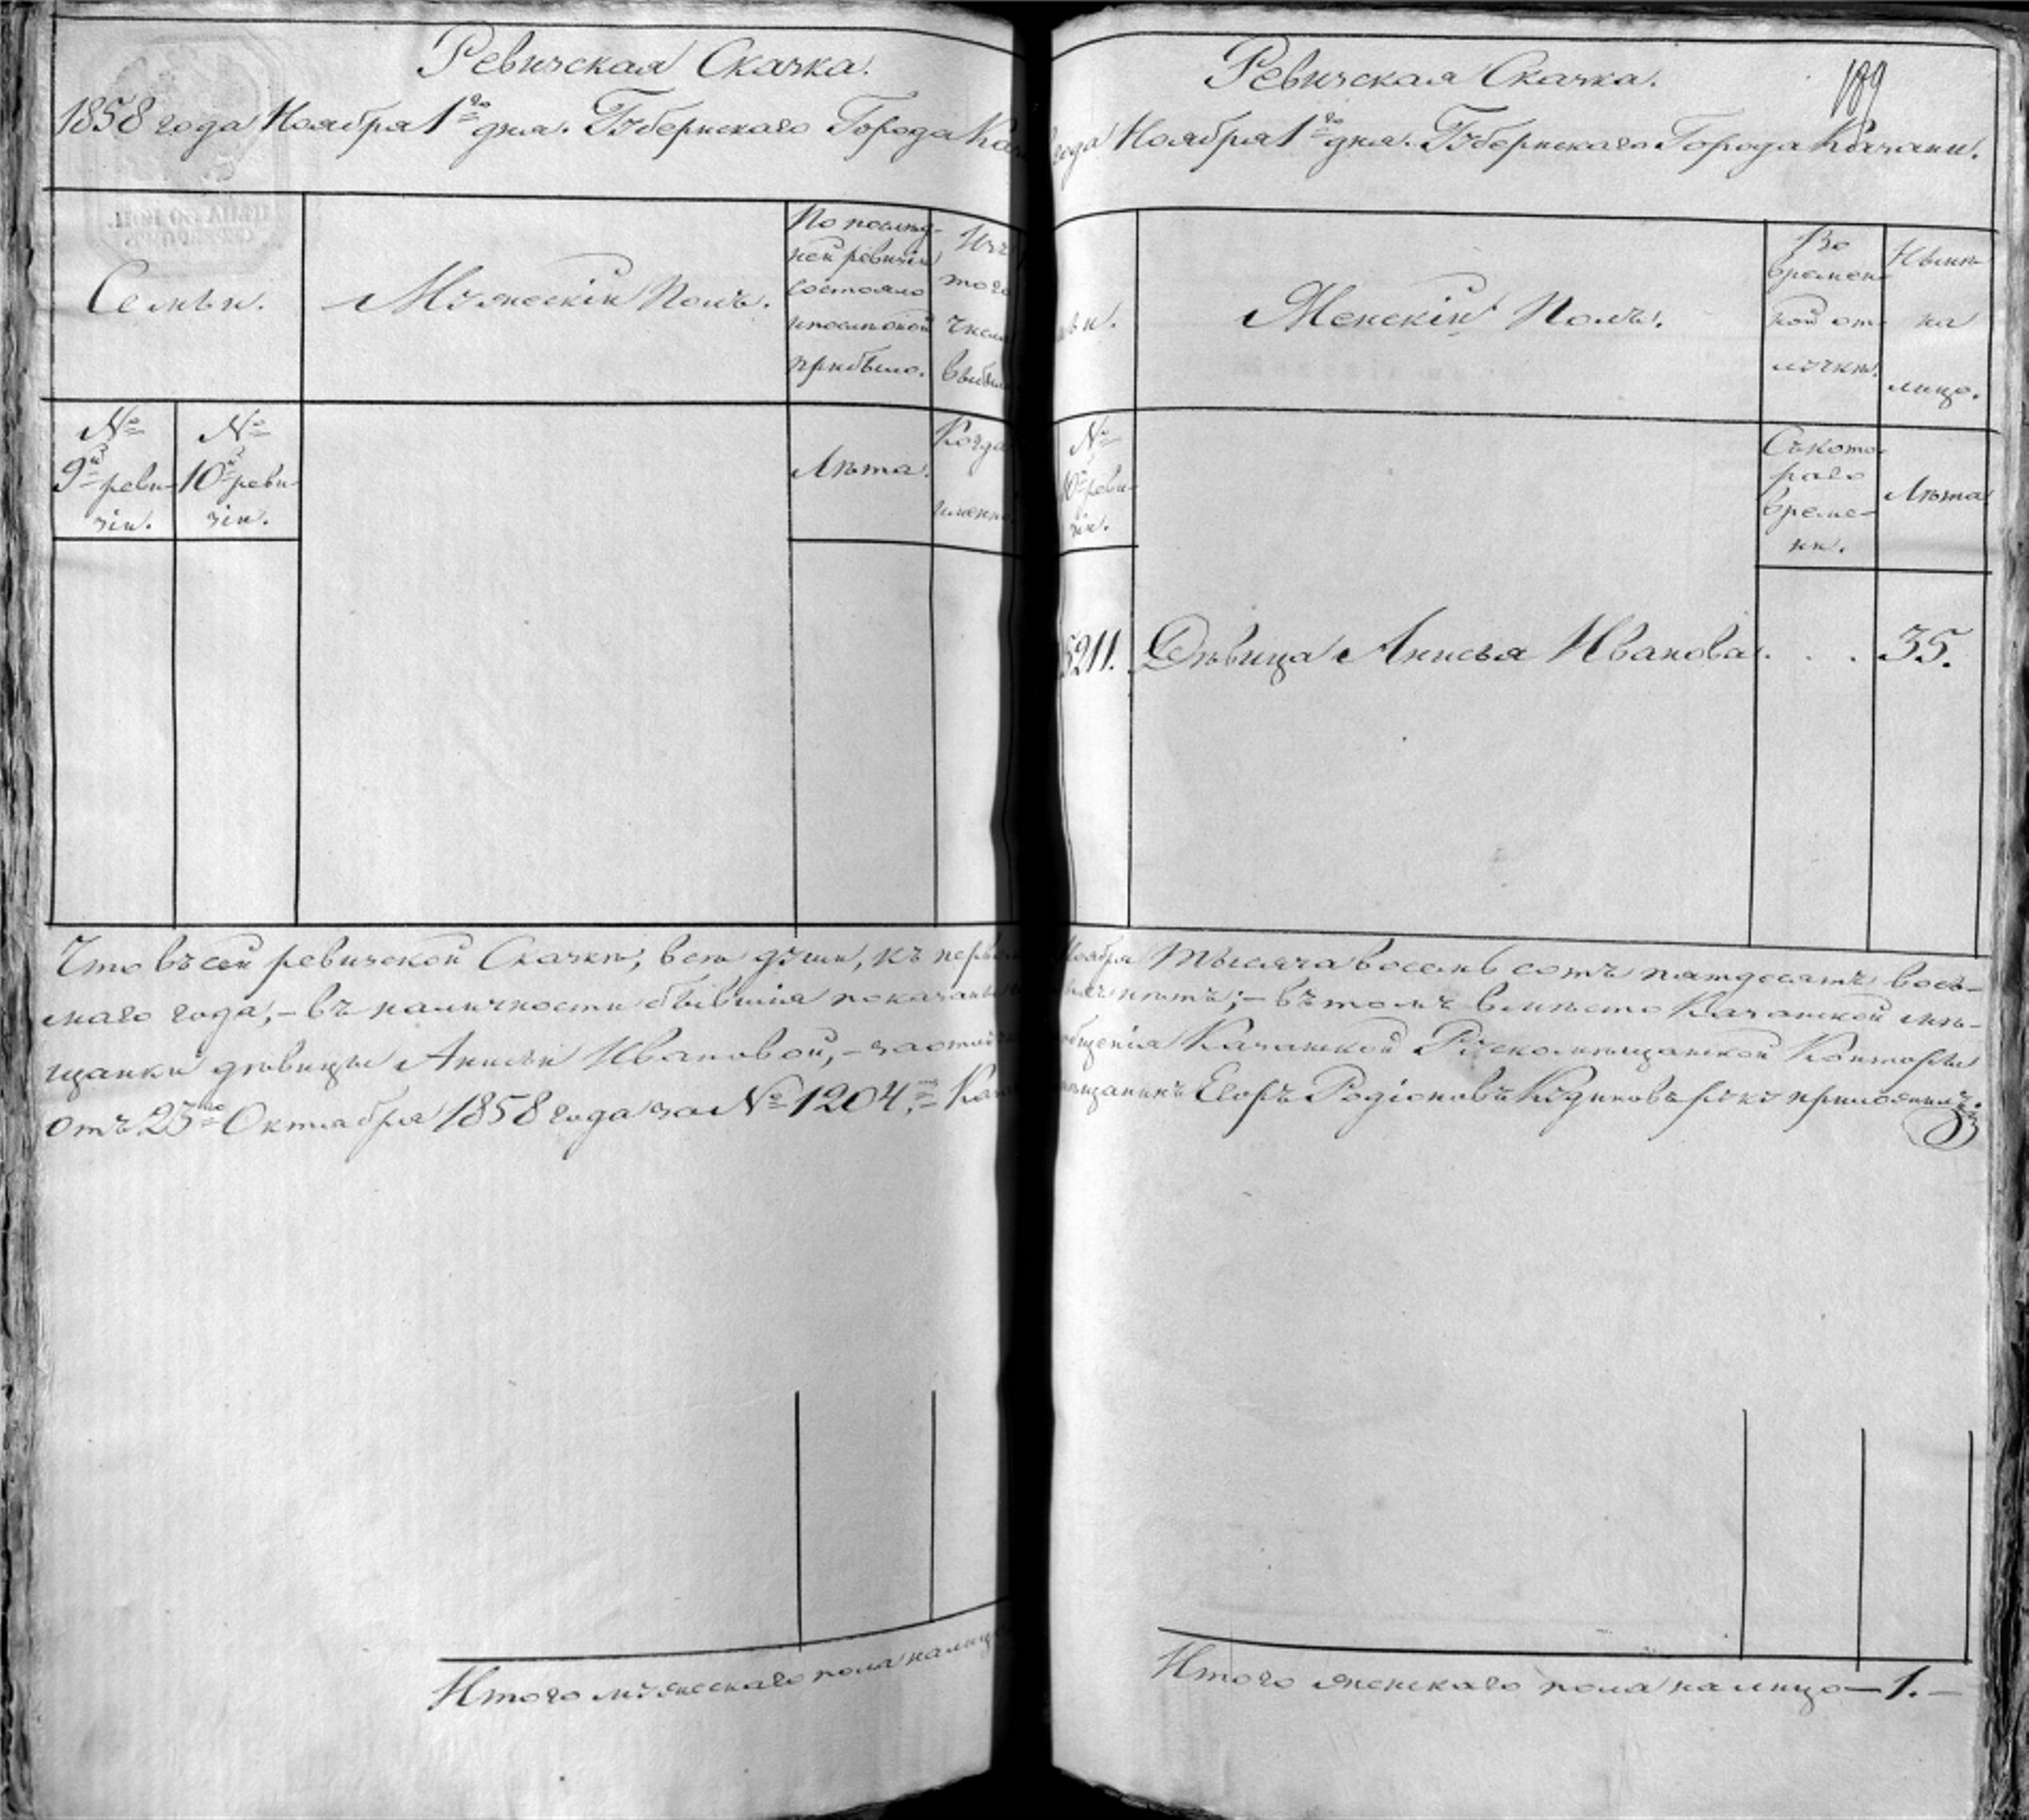 Ревизская Сказка.
1858 года Ноября 1го дня. Губернскаго Города Каз
Семьи.
Мужескій Полъ.
По послѣд-
ней ревизіи
состояло
и послѣ оной
прибыло.
Изъ
того
числа
выбыло
№
9й реви-
зіи.
№
10й реви-
зіи.
Лѣта.
Когда
именно
Что въ сей ревизской Сказкѣ, всѣ души, къ перво
маго года, – въ наличности бывшія показаны
щанки дѣвицы Анисьи Ивановой, –
отъ 25го Октября 1858 года за № 1204, – Каз
Итого мужескаго пола налицо
Ревизская Сказка.
189
года Ноября 1го дня. Губернскаго Города Казани.
ьи.
Женскій Полъ.
Во
времен-
ной от-
лучкѣ.
Нынѣ
на
лицо.
№
10й реви-
зіи.
Съ кото-
раго
време-
ни.
Лѣта
5211.
Дѣвица Анисья Иванова . . .
35.
Ноября тысяча восемь сотъ пятдесятъ вось-
нѣтъ; – въ томъ вмѣсто Казанской мѣ-
общенія Казанской Рускомѣщанской Конторы
мѣщанинъ Егоръ Родіоновъ Кудиновъ руку приложилъ.
Итого женскаго пола налицо – 1. –